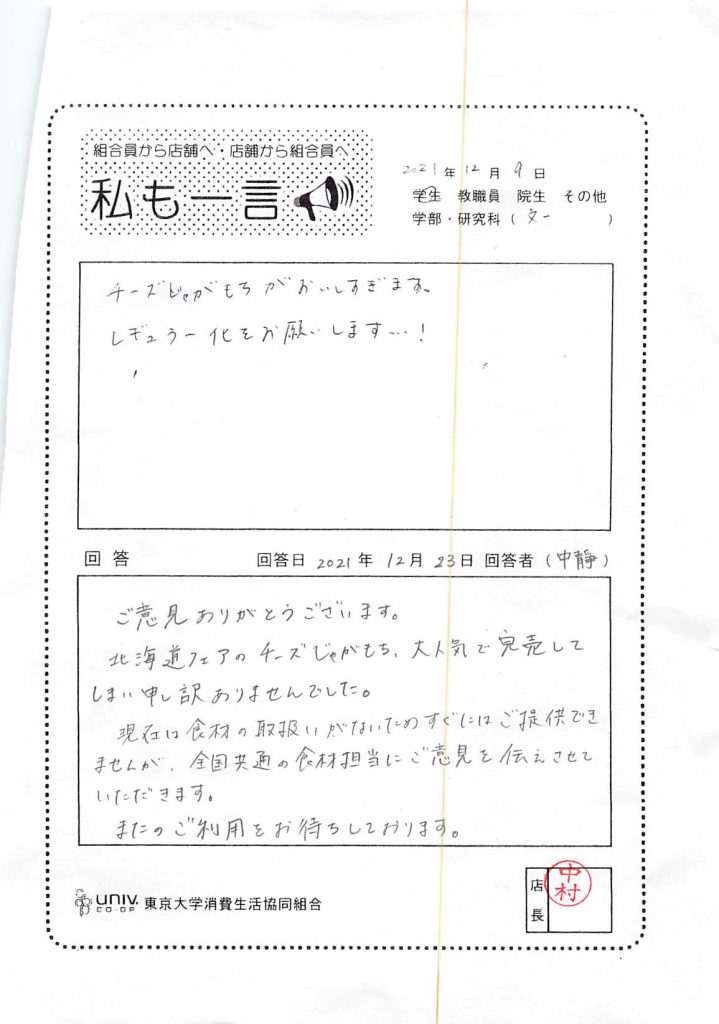 組合員から店舗へ・店舗から組合員へ
私も一言
2021年12月9日
学生 教職員 院生 その他
学部・研究科(文一)
チーズじゃがもちがおいしすぎます。
レギュラー化をお願いします…!
回答
回答日 2021年 12月 23日 回答者(中靜)
ご意見ありがとうございます。
北海道フェアのチーズじゃがもち、大人気で完売して
しまい申し訳ありませんでした。
現在は食材の取扱いがないためすぐにはご提供でき
ませんが、全国共通の食材担当にご意見を伝えさせて
いただきます。
またのご利用をお待ちしております。
UNIV.
CO-OP
東京大学消費生活協同組合
店長
中村